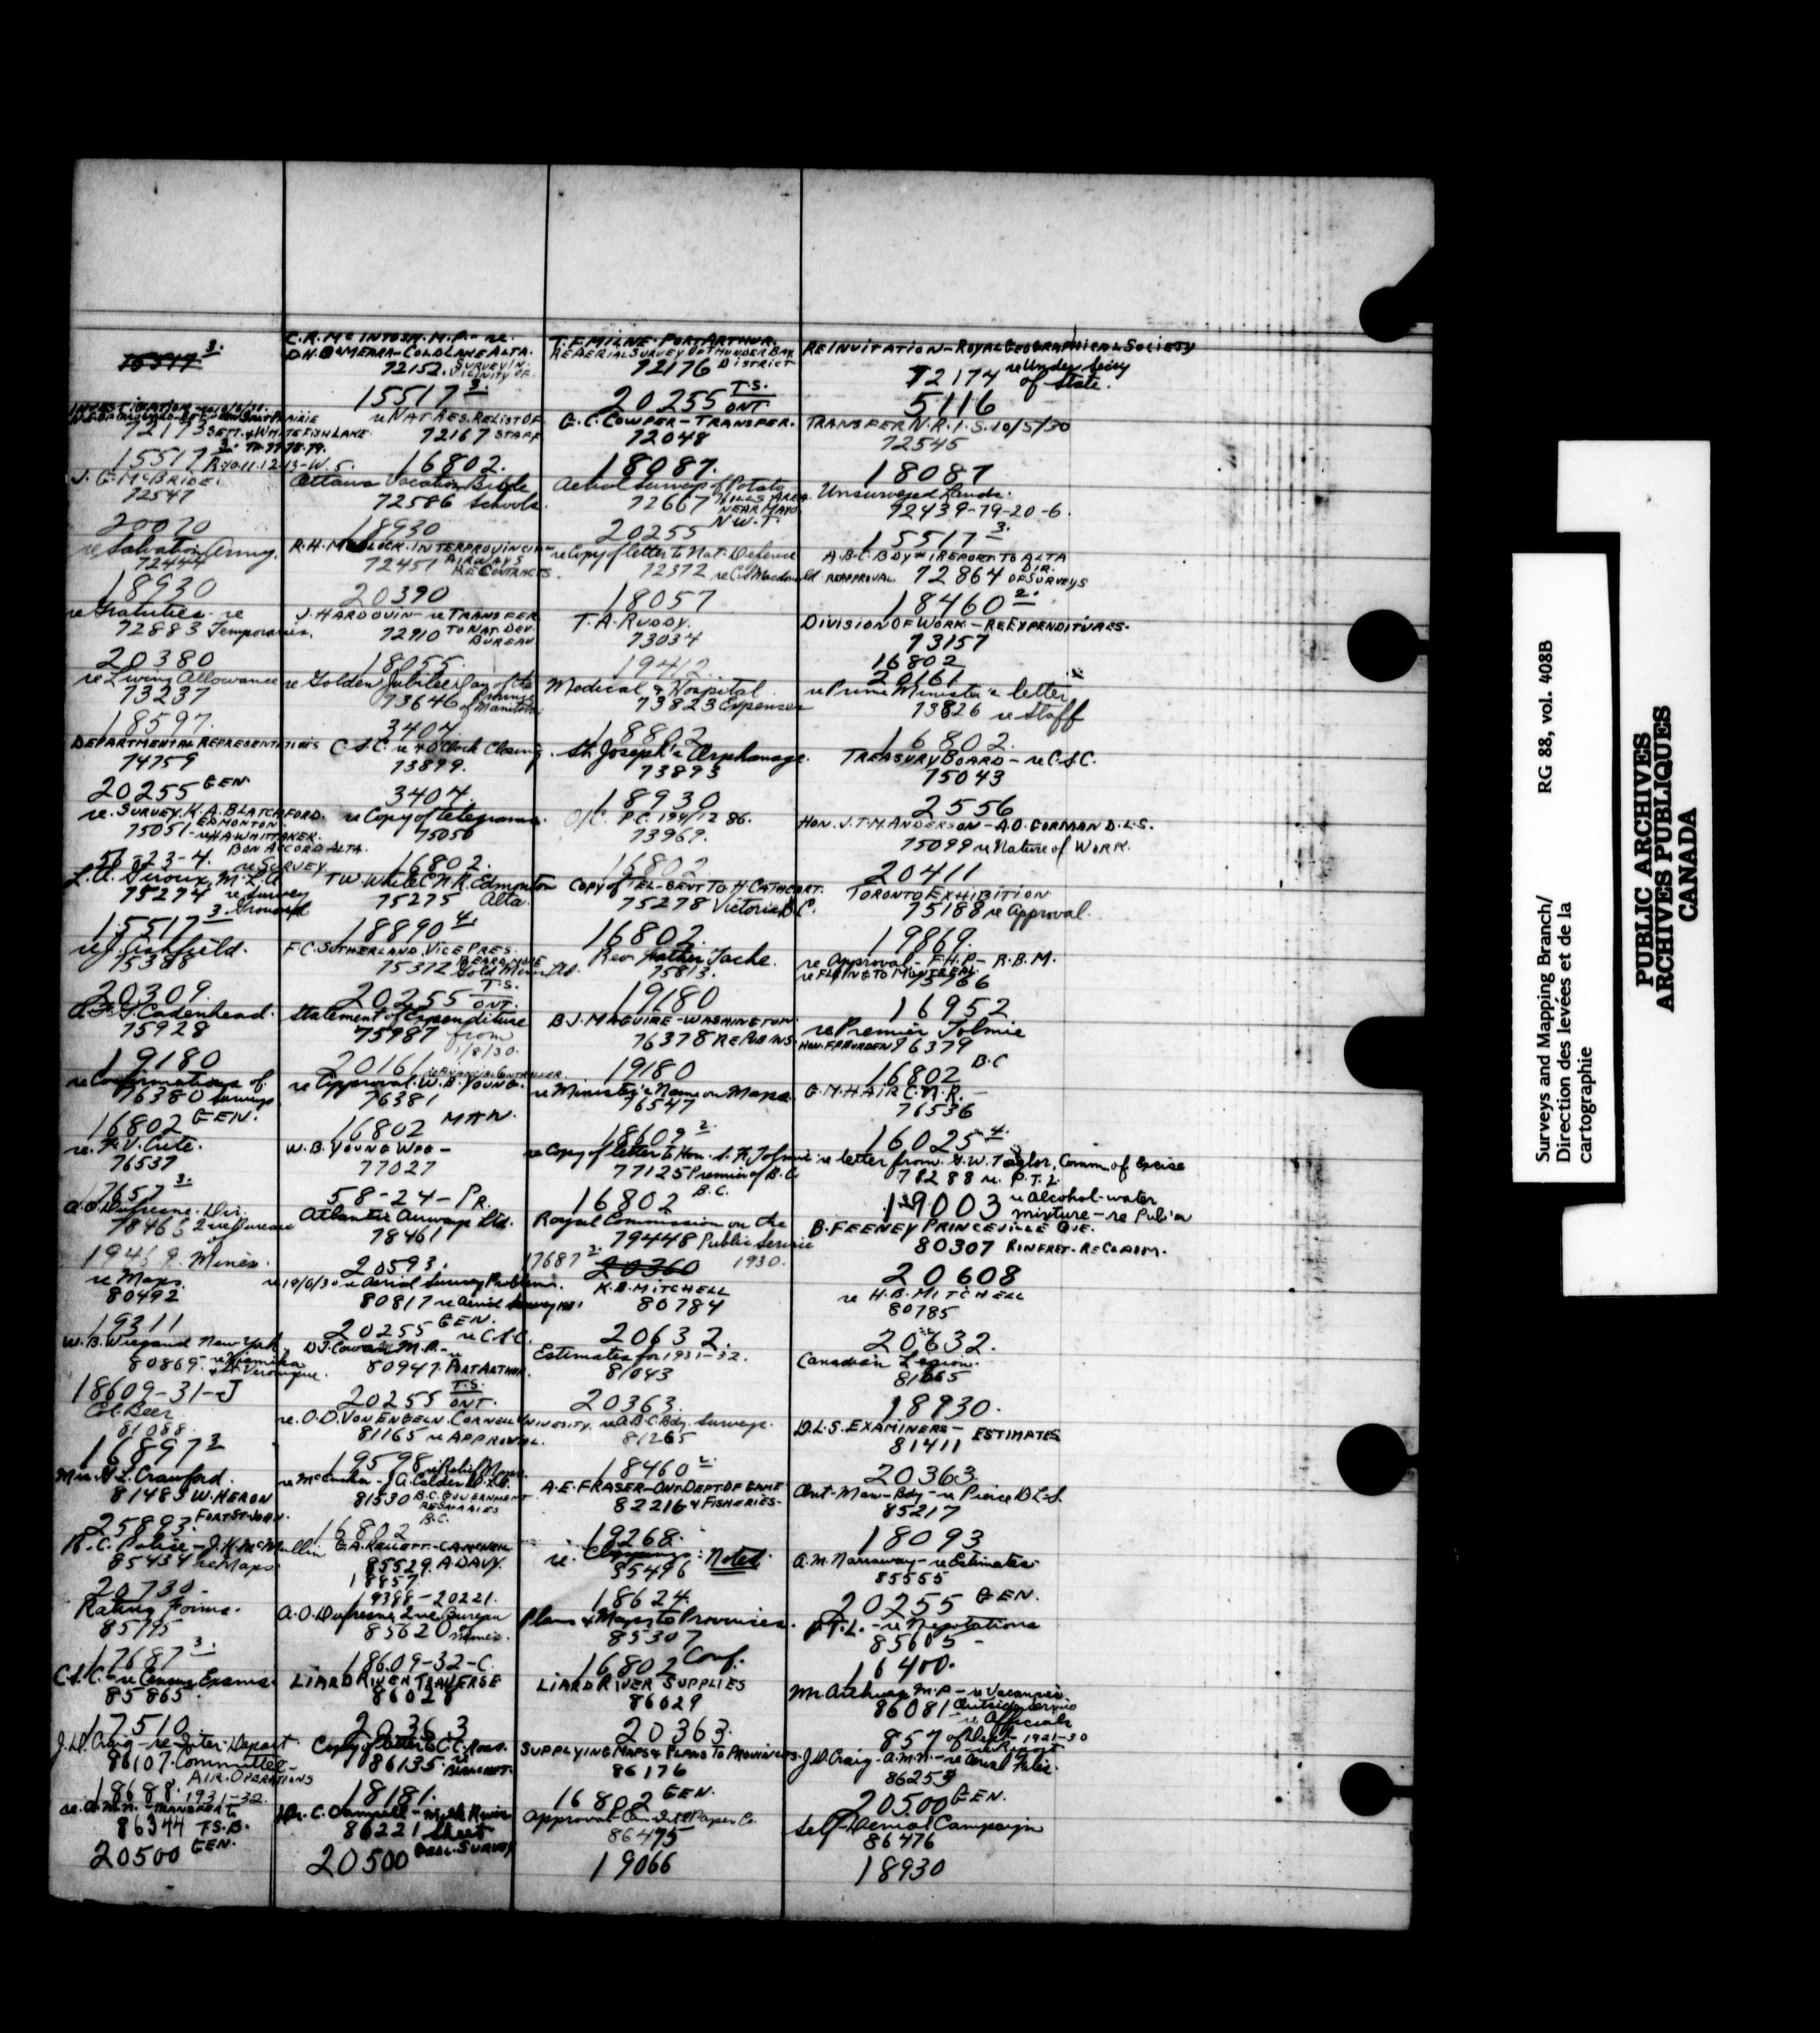 15517 3.
INVESTIGATION
72173 SETT. & WHITEFISH LAKE
15517 3. TP. 77-78-79.
R. 10.11.12.13-W.5.
J. G. McBRIDE.
72547
20070
re Salvation Army.
72444
18930
re Gratuities. re
72883 Temporaries.
20380
re Living Allowance
73237
18597.
DEPARTMENTAL REPRESENTATIVES
74759
20255 GEN
re. SURVEY. K. A. BLATCHFORD.
EDMONTON
75051 - re H.A. WHITTAKER.
BON ACCORD ALTA.
51-23-4. re SURVEY
L. A. Giroux, M.L.A.
75274 re Survey
15517 3. Grouard
re J. Ashfield.
75388
20309.
A. F. G. Cadenhead.
75928
19180
re Confirmations of
76380 Surveys
16802 GEN.
re. F. V. Cute.
76537
17657 3.
A. O. Dufresne. Dir.
78465 Que Bureau
of
19469. Mines.
re Maps.
80492
19311
W. B. Wiegand New York,
80869. re Kiamika
& St. Veronique.
18609-31-J
Col. Beer
81088.
16897 2
Mrs. G. L. Crawford.
81483 W. HERON
25893. FORT ST. JOHN.
B. C. Police - J. H. McMullin
85434 re Maps
20730-
Rating Forms.
85795
17687 3.
C.S.C. - re Census Exams.
85865.
17510.
J. D. Craig - re Inter-Depart
86107. Committee-
AIR. OPERATIONS
18688. 1931-32.
re. A.M.N. - TRANSFER to
86344 T.S.B.
20500 GEN.
C. R. McINTOSH. M.P. - re.
D. H. O'MEARA - COLD LAKE ALTA.
72152. SURVEY IN.
VICINITY OF.
15517 3.
re NAT. RES. RE LIST OF
72167 STAFF
16802.
Ottawa Vacation Bible
72586 Schools.
18930
R. H. MULOCK. INTERPROVINCIAL
72457 AIRWAYS
RE CONTRACTS.
20390
J. HARDOUIN - re TRANSFER
72910 TO NAT. DEV.
BUREAU
18055.
re Golden Jubilee Day of the
73646 Province
of Manitoba
3404.
C.S.C. re 4 O'Clock Closing.
73899.
3404.
re Copy of telegrams.
75050
16802.
T. W. White C N R. Edmonton
75275 Alta.
18890 4.
F. C. SUTHERLAND, VICE PRES.
75372 BEARDMORE
Gold Mines Ltd.
20255 T.S.
ONT.
Statement of Expenditure
75987 from
1/8/30.
20161 re FINANCIAL CONTROLLER.
re Approval. W. B. YOUNG.
76381
16802 MAN.
W. B. YOUNG WPG -
77027
58-24-PR.
Atlantic Airways Ltd.
78461
20593.
re 19/6/30 re Aerial Survey Problems.
80817 re Aerial Surveying
20255 GEN.
re C.S.C.
D. J. Cowan M.P. - re
80947. PORT ARTHUR.
20255 T.S.
ONT.
re. O. D. VON ENGELN. CORNELL UNIVERSITY.
81165 re APPROVAL.
19598 re Relief Maps.
81530 B.C. GOVERNMENT
B.C.
16802
85529. A. DAVY.
18857.
19388-20221.
A. O. Dufresne Que Bureau
85620 of Mines.
18609-32-C.
LIARD RIVER TRAVERSE
86028
20363
Copy of letter to C. C. Ross.
86135.
18181.
86221 Sheet
20500 GEOL. SURVEY
T. F. MILNE. PORT ARTHUR.
RE AERIAL SURVEY OF THUNDER BAY
72176 DISTRICT
20255 T.S.
ONT
G. C. COWPER - TRANSFER.
72048
18087.
Aerial Survey of Potato
72667 HILLS AREA
NEAR MAYO
N.W.T.
20255
re Copy of letter to Nat. Defence
72372 re C. S. Macdonald.
18057
T. A. RUDDY.
73034
19412..
Medical & Hospital
73823 Expenses
18802
St. Joseph's Orphanage.
73893
18930
O/C. P.C. 194/1286.
73969.
16802
COPY OF TEL - SENT TO H. CATHCART.
75278 Victoria B.C.
16802.
Rev. Father Tache.
75813.
19180
B. J. MAGUIRE - WASHINGTON.
76378 RE PLANS
19180
re Minister's Name on Maps.
76547
18609 2.
re Copy of letter to Hon. S. F. Tolmie
77125 Premier of B.C.
16802 B.C.
Royal Commission on the
79448 Public Service
17687 2. 20360 1930.
K. B. MITCHELL
80784
20632.
Estimates for 1931-32.
81043
20363.
re A.B.C. Bdy. Surveys.
81265
18460 2.
A. E. FRASER - ONT. DEPT OF GAME
82216 & FISHERIES-
19268.
re. Clippings: Noted.
85496
18624.
Plans & Maps to Provinces.
85307
16802 Conf.
LIARD RIVER SUPPLIES
86029
20363.
SUPPLYING MAPS & PLANS TO PROVINCES.
86176
16802 GEN.
86475
19066
RE INVITATION - ROYAL GEOGRAPHICAL SOCIETY
72174 re Under Secy
of State.
5116
TRANSFER N.R.I.S. 10/5/30
72545
18087
Unsurveyed Lands.
72439-79-20-6.
15517 3.
A.B.C. BDY # 1 REPORT TO ALTA
RE APPROVAL 72864 DIR.
OF SURVEYS
18460 2.
DIVISION OF WORK - RE EXPENDITURES.
73157
16802
20161
re Prime Minister's letter
73826 re Staff
16802.
TREASURY BOARD - re C.S.C.
75043
2556
HON. J. T. M. ANDERSON - A. O. GORMAN D.L.S.
75099 re Nature of WORK.
20411
TORONTO EXHIBITION
75188 re Approval.
19869.
re Approval - F.H.P - R.B.M.
re FLYING TO MONTREAL.
75966
16952
re Premier Tolmie
HON. F. P. BURDEN 76379
16802 B.C
G. M. HAIR C.N.R. -
76536
16025 4.
re letter from G. W. Taylor, Comm. of Excise
78288 re. P.T.L.
19003 re Alcohol-water
mixture - re
B. FEENEY PRINCEVILLE QUE.
80307 RINFRET. RE CLAIM.
20608
re H. B. MITCHELL
80785
20632.
Canadian Legion.
18930.
D.L.S. EXAMINERS - ESTIMATES
81411
20363
Ont-Man-Bdy - re Pierce D.L.S.
85217
18093
A. M. Narraway - re Estimates
85555
20255 GEN.
P.T.L. - re Negotiations
85605 -
16400.
86081 Outside Service
re Officials
857 of Dept - 1921-30
re Report
J. D. Craig - A.M.N. - re Aerial Files.
86253
20500 GEN.
Self-Denial Campaign
86476
18930
Surveys and Mapping Branch/
Direction des levées et de la
cartographie
RG 88, vol. 408B
PUBLIC ARCHIVES
ARCHIVES PUBLIQUES
CANADA